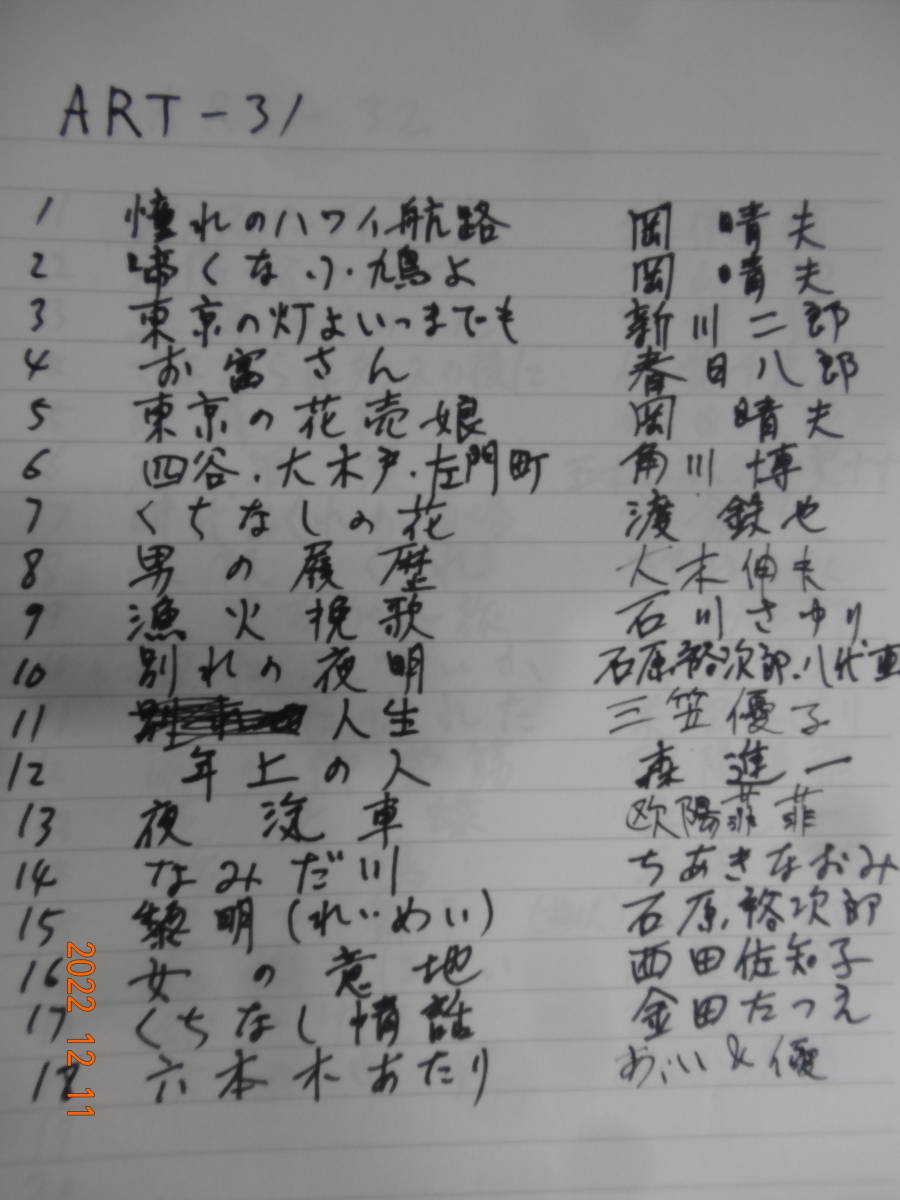 ART-31
1 憧れのハワイ航路 岡晴夫
2 啼くな小鳩よ 岡晴夫
3 東京の灯よいつまでも 新川二郎
4 お富さん 春日八郎
5 東京の花売娘 岡晴夫
6 四谷・大木戸・左門町 角川博
7 くちなしの花 渡鉄也
8 男の履歴 大木伸夫
9 漁火挽歌 石川さゆり
10 別れの夜明 石原裕次郎・八代亜
11 人生 三笠優子
12 年上の人 森進一
13 夜汽車 欧陽菲菲
14 なみだ川 ちあきなおみ
15 黎明(れいめい) 石原裕次郎
16 女の意地 西田佐知子
17 くちなし情話 金田たつえ
18 六本木あたり &優
2022 12 11